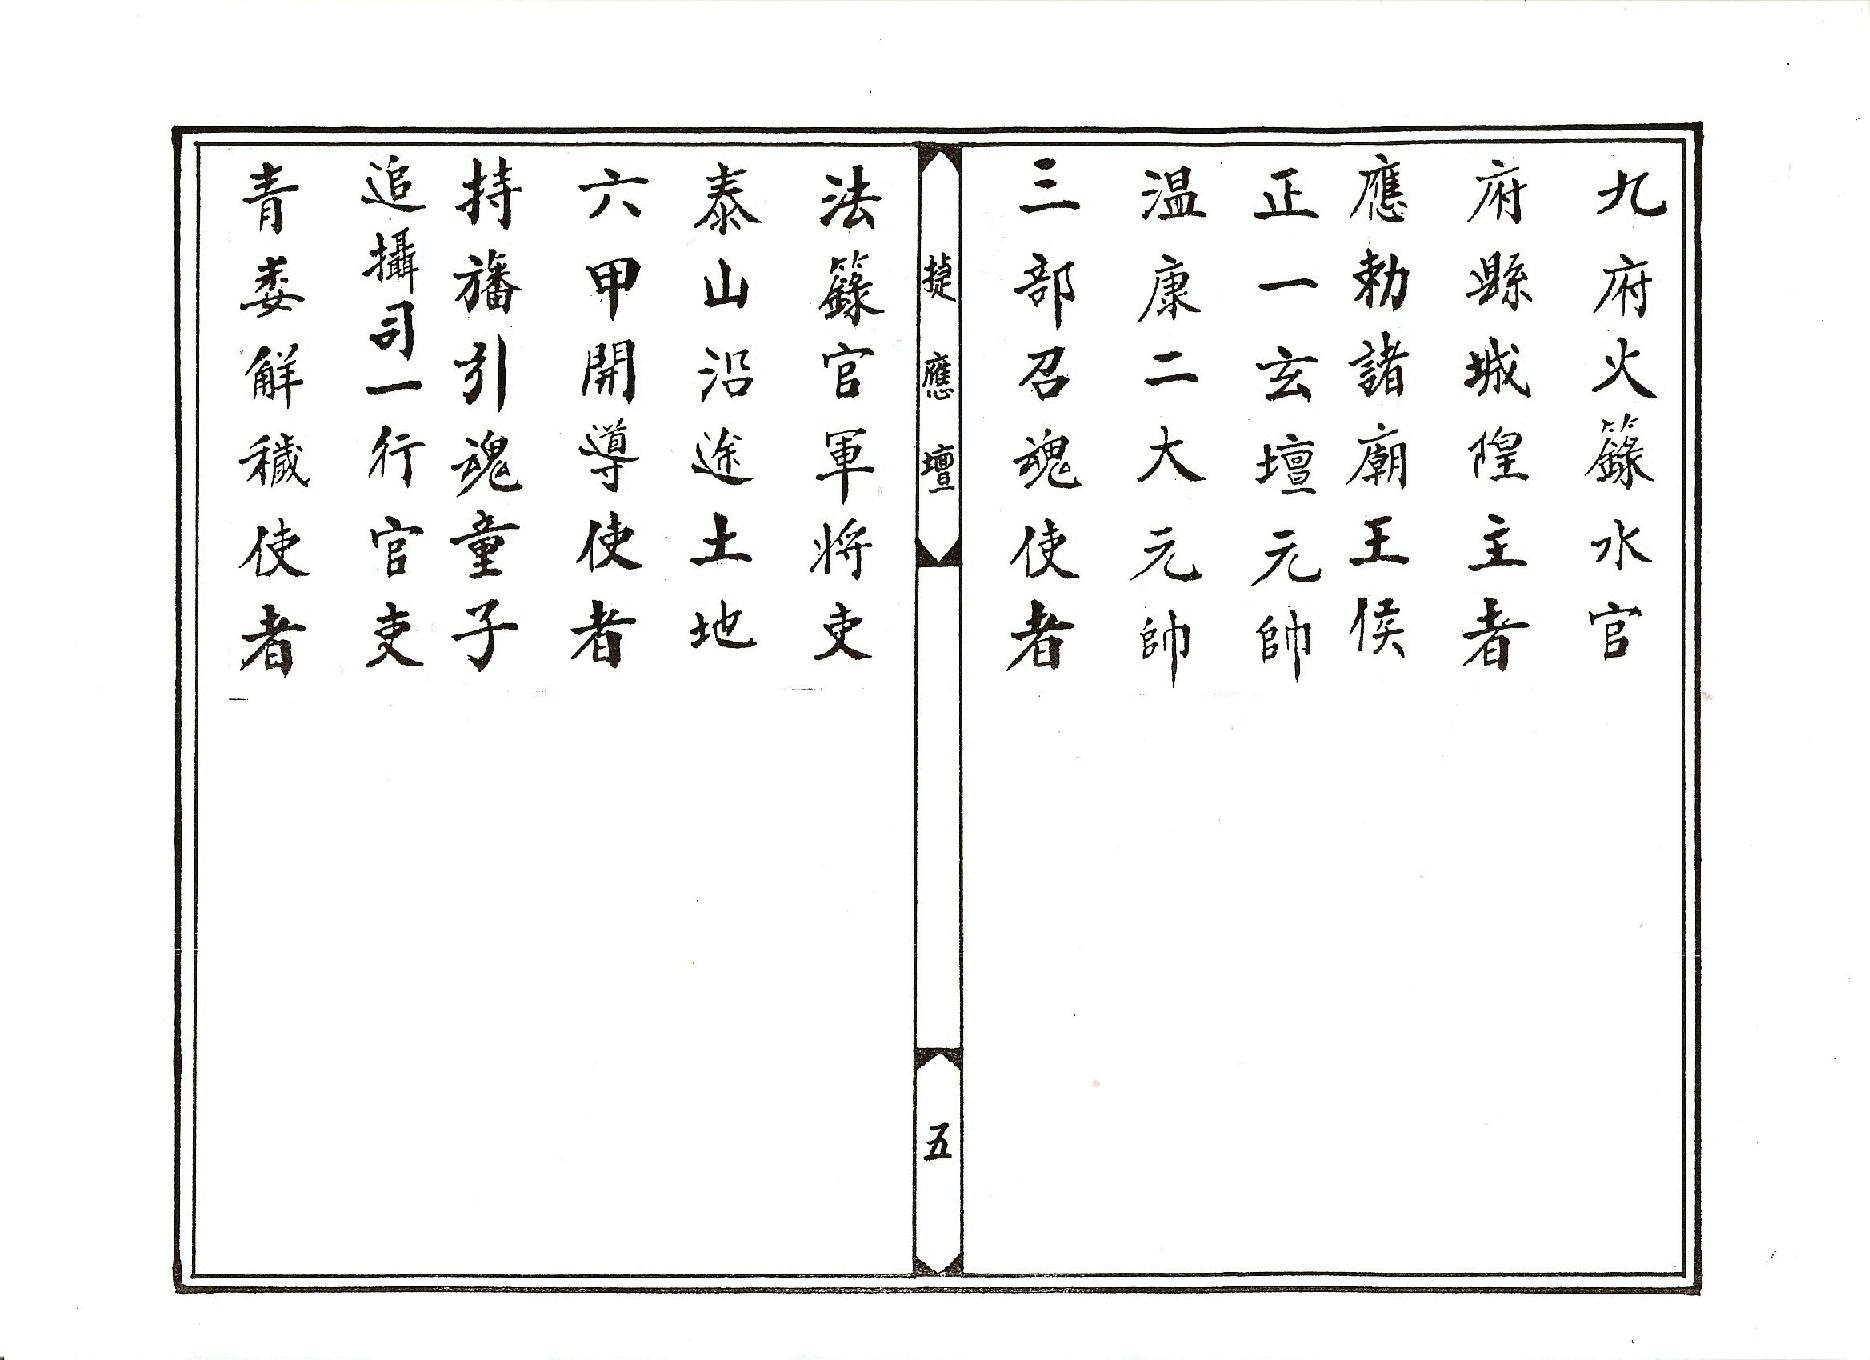 九府火籙水官
府縣城隍主者
應勅諸廟王侯
正一玄壇元帥
温康二大元帥
三部召魂使者
捷應壇
五
法籙官軍將吏
泰山沿途土地
六甲開導使者
持旛引魂童子
追攝司一行官吏
青委解穢使者